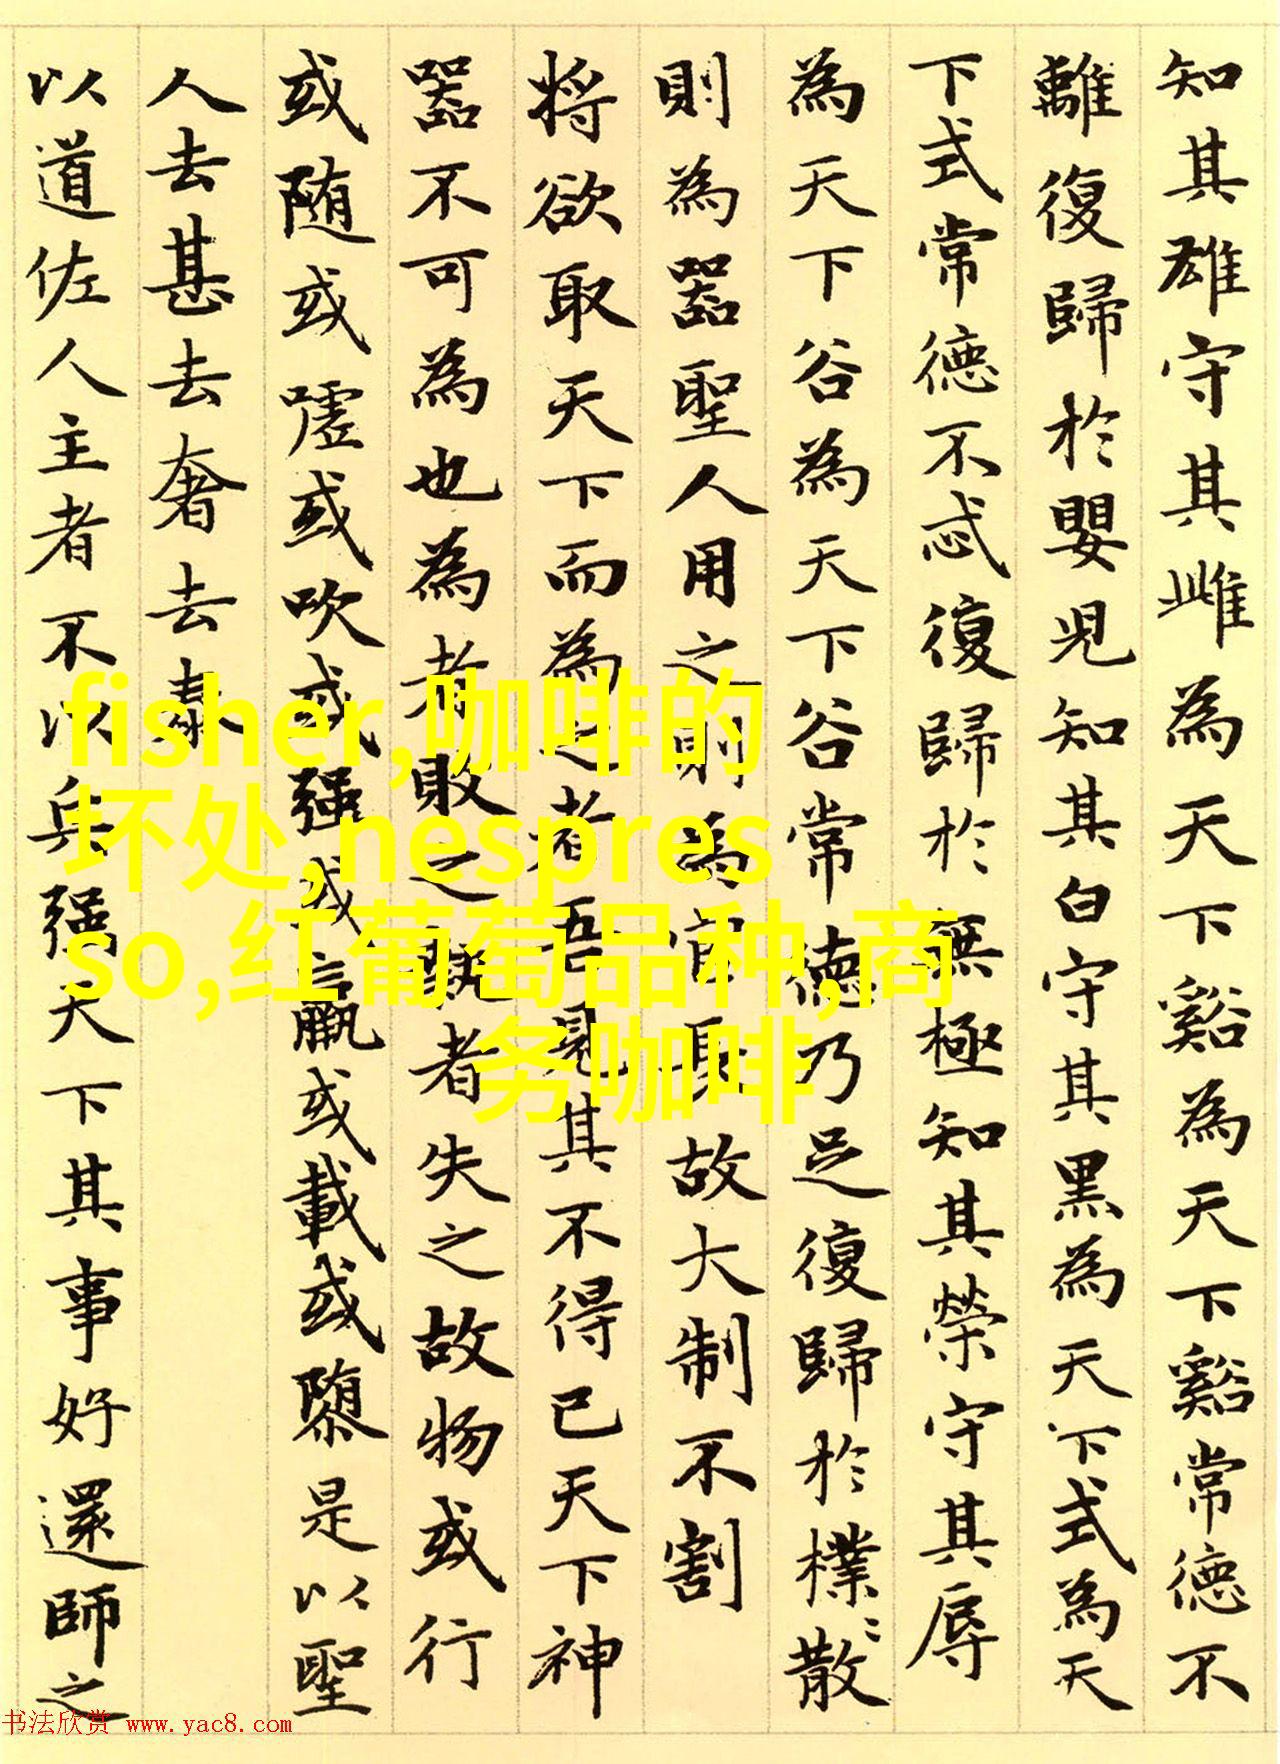 知其雄守其雌為天下谿為天下谿常德不
離復歸於嬰兒知其白守其黑為天下式為天
下式常德不忒復歸於無極知其榮守其辱
為天下谷為天下谷常德乃足復歸於樸樸散
則為器聖人用之則為官長故大制不割
將欲取天下而為之者吾見其不得已天下神
器不可為也為者敗之執者失之故物或行
或随或噓或吹或强或羸或載或隳是以聖
人去甚去奢去泰
以道佐人主者不以兵强天下其事好還師之
fisher,咖啡的
坏处,nespres
so,红葡萄品种,商
务咖啡
书法欣赏 www.yac8.com